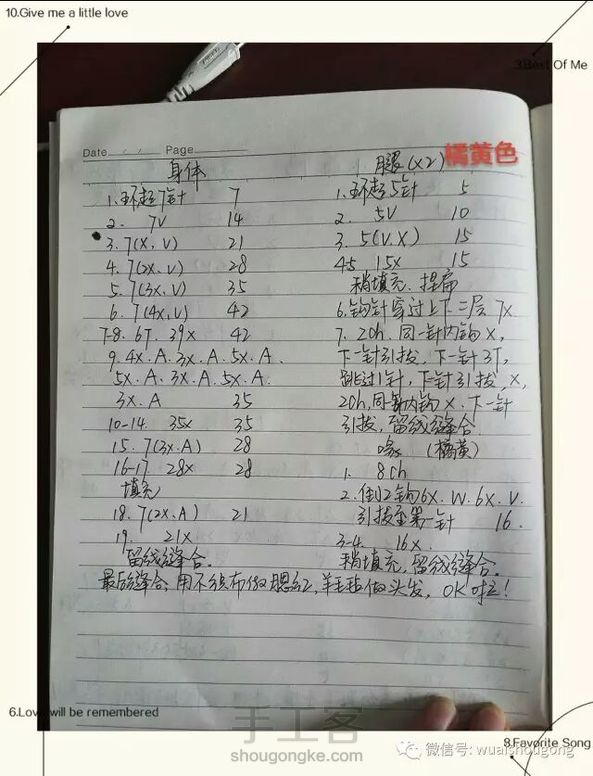 10.Give me a little love
3.Best Of Me
Date Page
身体
1.环起7针 7
2. 7V 14
3. 7(X,V) 21
4. 7(2X,V) 28
5. 7(3X,V) 35
6. 7(4X,V) 42
7-8. 6T. 39X 42
9. 4X.A.3X.A.5X.A.
5X.A.3X.A.5X.A.
3X.A 35
10-14. 35X 35
15. 7(3X.A) 28
16-17 28X 28
填充
18. 7(2X.A) 21
19. 21X
留线缝合.
腿(X2) 橘黄色
1.环起5针 5
2. 5V 10
3. 5(V.X) 15
4.5 15X 15
稍填充、捏扁
6.钩针穿过上下二层7X
7. 2ch.同一针内钩X,
下一针引拔,下一针3T,
跳过1针,下针引拔,X,
2ch,同针内钩X.下一针
引拔,留线缝合.
喙 (橘黄)
1. 8ch
2.倒2钩6X.W.6X.V.
引拔至第一针 16.
3-4. 16X.
稍填充,留线缝合.
最后缝合,用不织布做腮红,羊毛毡做头发,OK啦!
6.Love will be remembered
手工客
shougongke.com
微信号: wuaishougong
8.Favorite Song